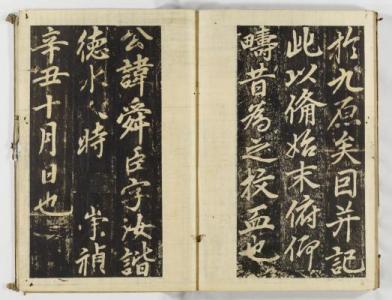 於九原矣因并記
此以俻始末俯仰
疇昔為之也
公諱舜臣字汝諧
德水人時 崇禎
辛丑十月日也